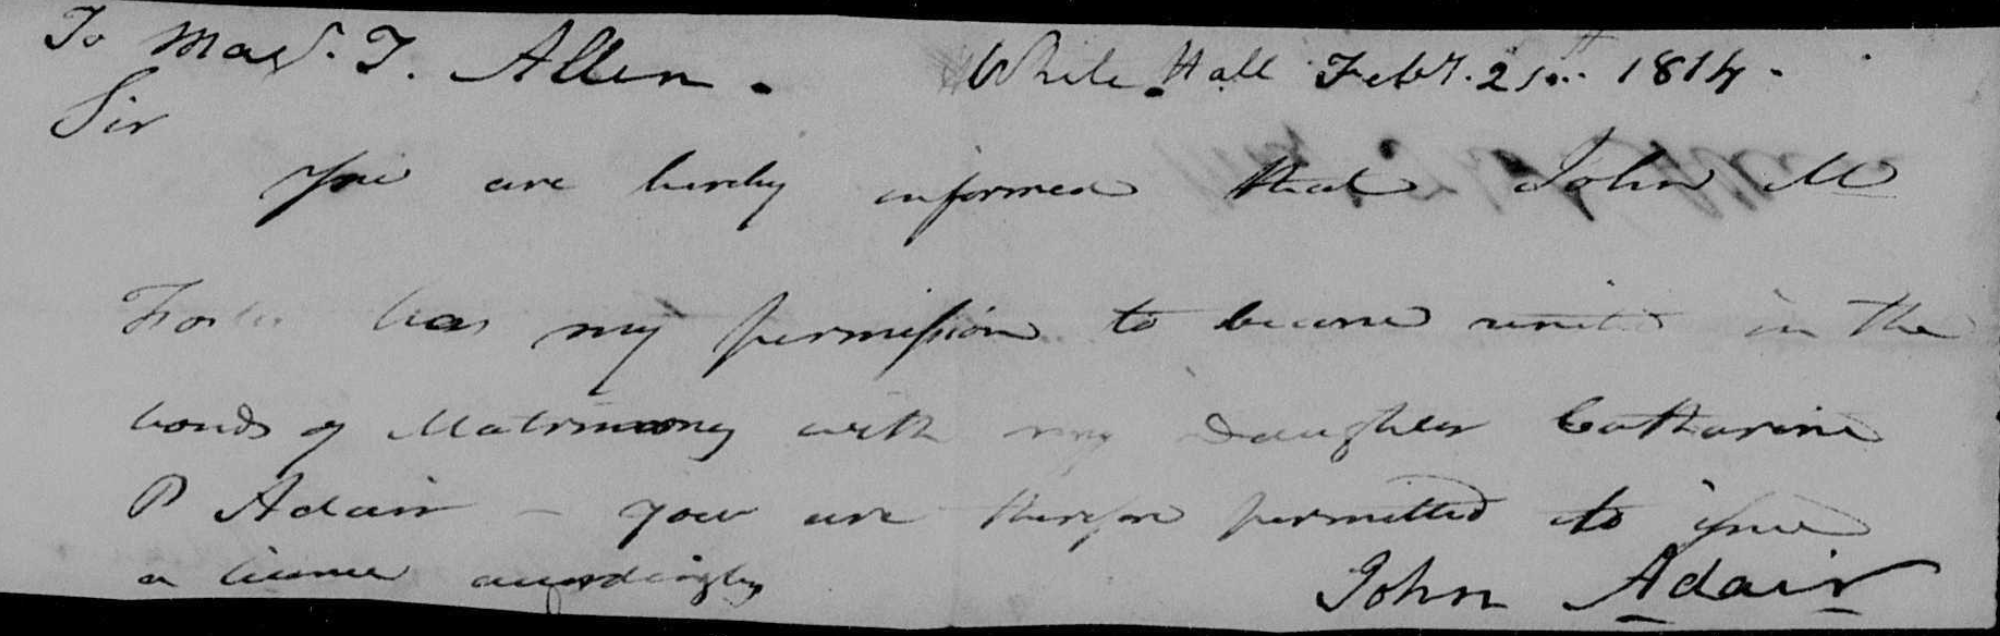 To Majr. T. Allen. White Hall Feby. 21st. 1814.
Sir
You are hereby informed that John M
Foster has my permission to become united in the
bonds of Matrimony with my Daughter Catharine
P Adair – you are therefore permitted to issue
a license accordingly
John Adair